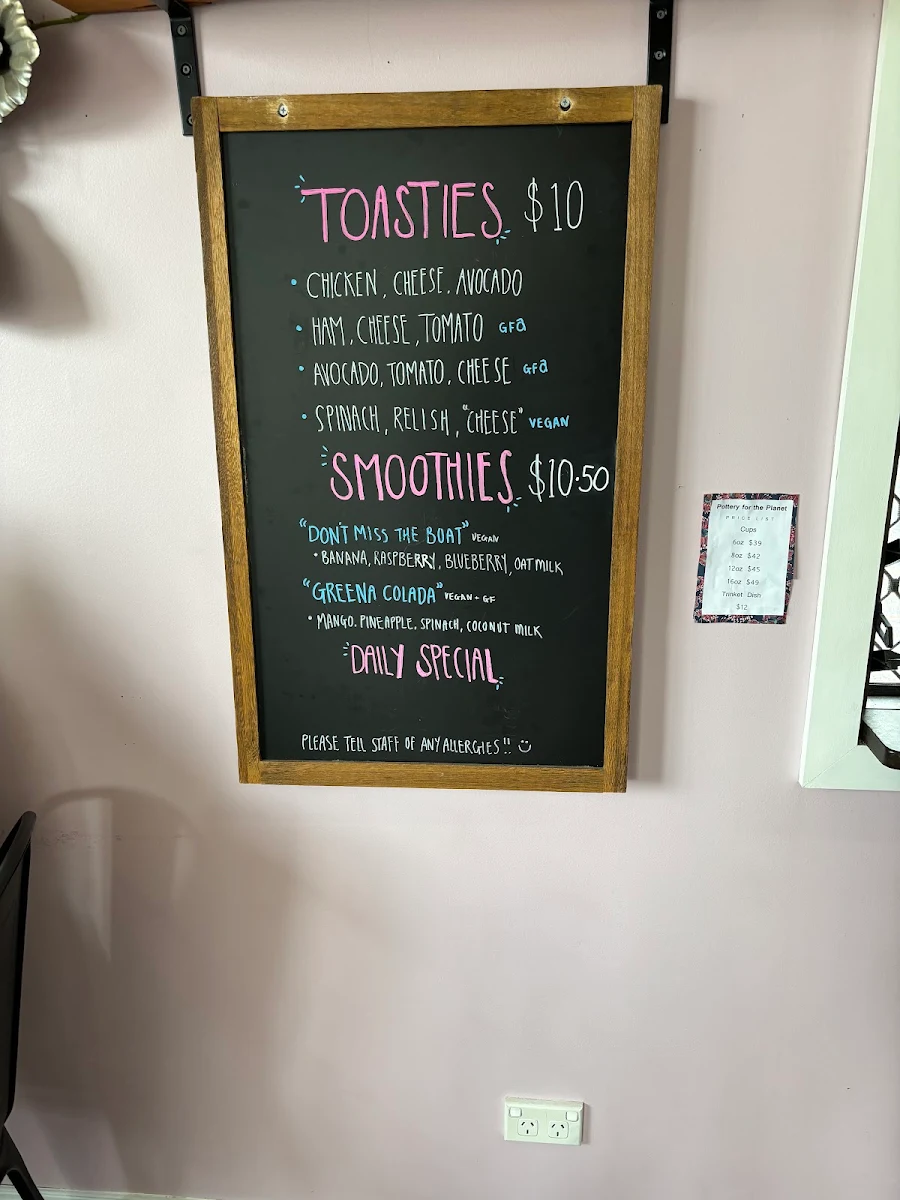 TOASTIES $10
• CHICKEN, CHEESE, AVOCADO
• HAM, CHEESE, TOMATO GFa
• AVOCADO, TOMATO, CHEESE GFa
• SPINACH, RELISH, "CHEESE" VEGAN
SMOOTHIES $10.50
"DON'T MISS THE BOAT" VEGAN
• BANANA, RASPBERRY, BLUEBERRY, OAT MILK
"GREENA COLADA" VEGAN + GF
• MANGO, PINEAPPLE, SPINACH, COCONUT MILK
DAILY SPECIAL
PLEASE TELL STAFF OF ANY ALLERGIES!! ☺
Pottery for the Planet
PRICE LIST
Cups
6oz $39
8oz $42
12oz $45
16oz $49
Trinket Dish
$12